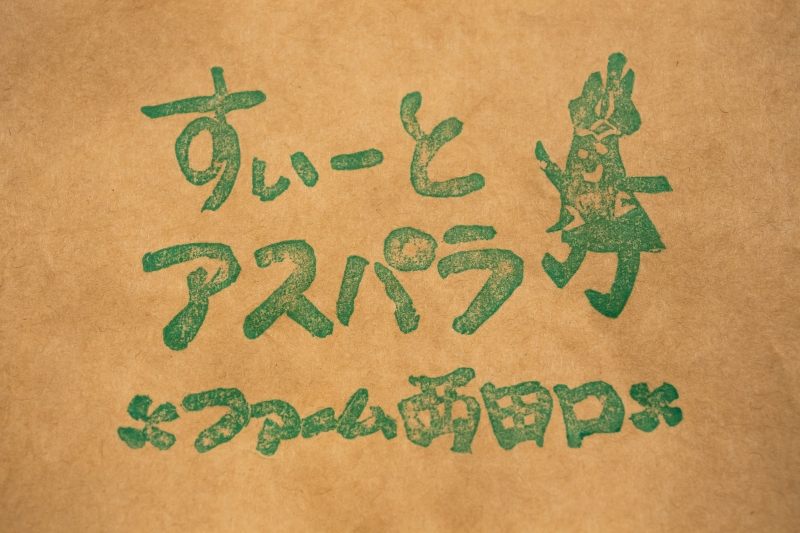 すぃーと
アスパラ
ファーム西田口